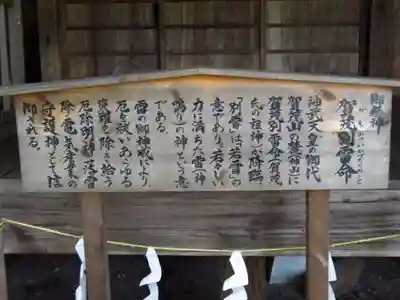 御祭神
賀茂別雷命
神武天皇の御代
賀茂山の麓
賀茂別雷命(賀茂
氏の祖神)が降臨
「別雷」は「若雷」の
意であり、若々しい
力に満ちた雷(神
鳴り)の神という意
である。
雷の御神威により、
厄を祓いあらゆる
災難を除き給う
厄除明神・落雷
除・電気産業の
守護神として信
仰される。